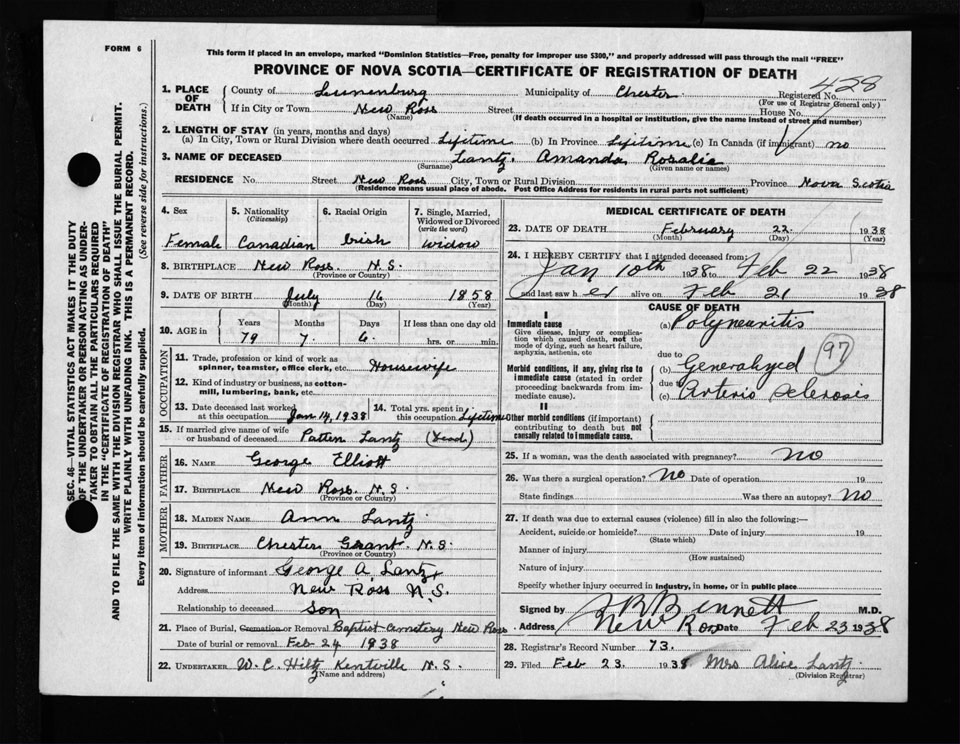 FORM 6
This form if placed in an envelope, marked "Dominion Statistics—Free, penalty for improper use $300," and properly addressed will pass through the mail "FREE"
PROVINCE OF NOVA SCOTIA—CERTIFICATE OF REGISTRATION OF DEATH
428
1. PLACE OF DEATH
County of Lunenburg Municipality of Chester Registered No.
(For use of Registrar General only)
If in City or Town New Ross Street House No.
(Name) (If death occurred in a hospital or institution, give the name instead of street and number)
2. LENGTH OF STAY (in years, months and days)
(a) In City, Town or Rural Division where death occurred Lifetime (b) In Province Lifetime (c) In Canada (if immigrant) no
3. NAME OF DECEASED Lantz, Amanda Rosalia
(Surname) (Given name or names)
RESIDENCE No. Street New Ross City, Town or Rural Division Province Nova Scotia
(Residence means usual place of abode. Post Office Address for residents in rural parts not sufficient)
SEC. 46—VITAL STATISTICS ACT MAKES IT THE DUTY
OF THE UNDERTAKER OR PERSON ACTING AS UNDER-
TAKER TO OBTAIN ALL THE PARTICULARS REQUIRED
IN THE "CERTIFICATE OF REGISTRATION OF DEATH"
AND TO FILE THE SAME WITH THE DIVISION REGISTRAR WHO SHALL ISSUE THE BURIAL PERMIT.
WRITE PLAINLY WITH UNFADING INK. THIS IS A PERMANENT RECORD.
Every item of information should be carefully supplied. (See reverse side for instructions.)
4. Sex 5. Nationality 6. Racial Origin 7. Single, Married,
(Citizenship) Widowed or Divorced
(write the word)
Female Canadian Irish Widow
8. BIRTHPLACE New Ross. N.S.
(Province or Country)
9. DATE OF BIRTH July 16 1858
(Month) (Day) (Year)
10. AGE in Years Months Days If less than one day
79 7 6 hrs. or min.
OCCUPATION
11. Trade, profession or kind of work as
spinner, teamster, office clerk, etc. Housewife
12. Kind of industry or business, as cotton-
mill, lumbering, bank, etc.
13. Date deceased last worked at this occupation Jan 14, 1938
14. Total yrs. spent in this occupation Lifetime
15. If married give name of wife
or husband of deceased Patten Lantz (Dead)
FATHER
16. NAME George Elliott
17. BIRTHPLACE New Ross N.S.
(Province or Country)
MOTHER
18. MAIDEN NAME Ann Lantz
19. BIRTHPLACE Chester Grant. N.S.
(Province or Country)
20. Signature of informant George A. Lantz
Address New Ross N.S.
Relationship to deceased Son
21. Place of Burial, Cremation or Removal Baptist Cemetery New Ross
Date of burial or removal Feb 24 1938
22. UNDERTAKER W. E. Hiltz Kentville N.S.
(Name and address)
MEDICAL CERTIFICATE OF DEATH
23. DATE OF DEATH February 22 1938
(Month) (Day) (Year)
24. I HEREBY CERTIFY that I attended deceased from:
Jan 10th 1938 to Feb 22 1938
and last saw her alive on Feb 21 1938
CAUSE OF DEATH
I
Immediate cause
Give disease, injury or complica-
tion which caused death, not the
mode of dying, such as heart failure,
asphyxia, asthenia, etc
(a) Polyneuritis
97
Morbid conditions, if any, giving rise to
immediate cause (stated in order
proceeding backwards from im-
mediate cause).
due to
(b) Generalized
due to
(c) Arterio Sclerosis
II
Other morbid conditions (if important)
contributing to death but not
causally related to immediate cause.
25. If a woman, was the death associated with pregnancy? No
26. Was there a surgical operation? No Date of operation 19
State findings Was there an autopsy? No
27. If death was due to external causes (violence) fill in also the following:—
Accident, suicide or homicide? Date of injury 19
(State which)
Manner of injury
(How sustained)
Nature of injury
Specify whether injury occurred in industry, in home, or in public place
Signed by Bennett M.D.
Address New Ross Date Feb 23 1938
28. Registrar's Record Number 73.
29. Filed Feb 23. 1938 Mrs Alice Lantz
(Division Registrar)